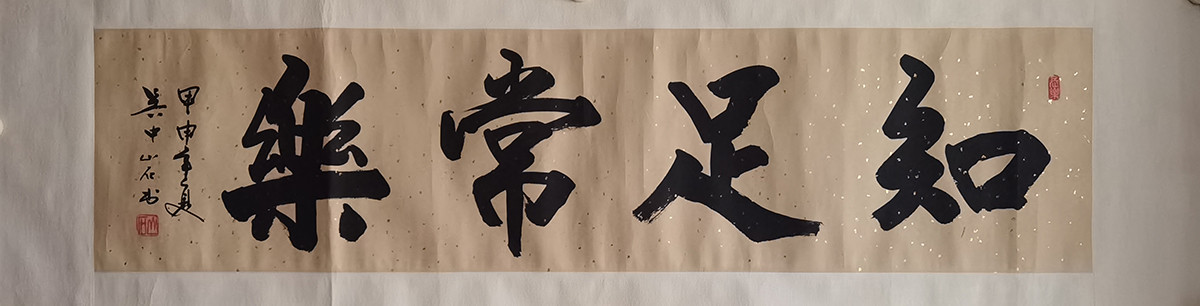 知足常樂
甲申年夏
吳中山石書